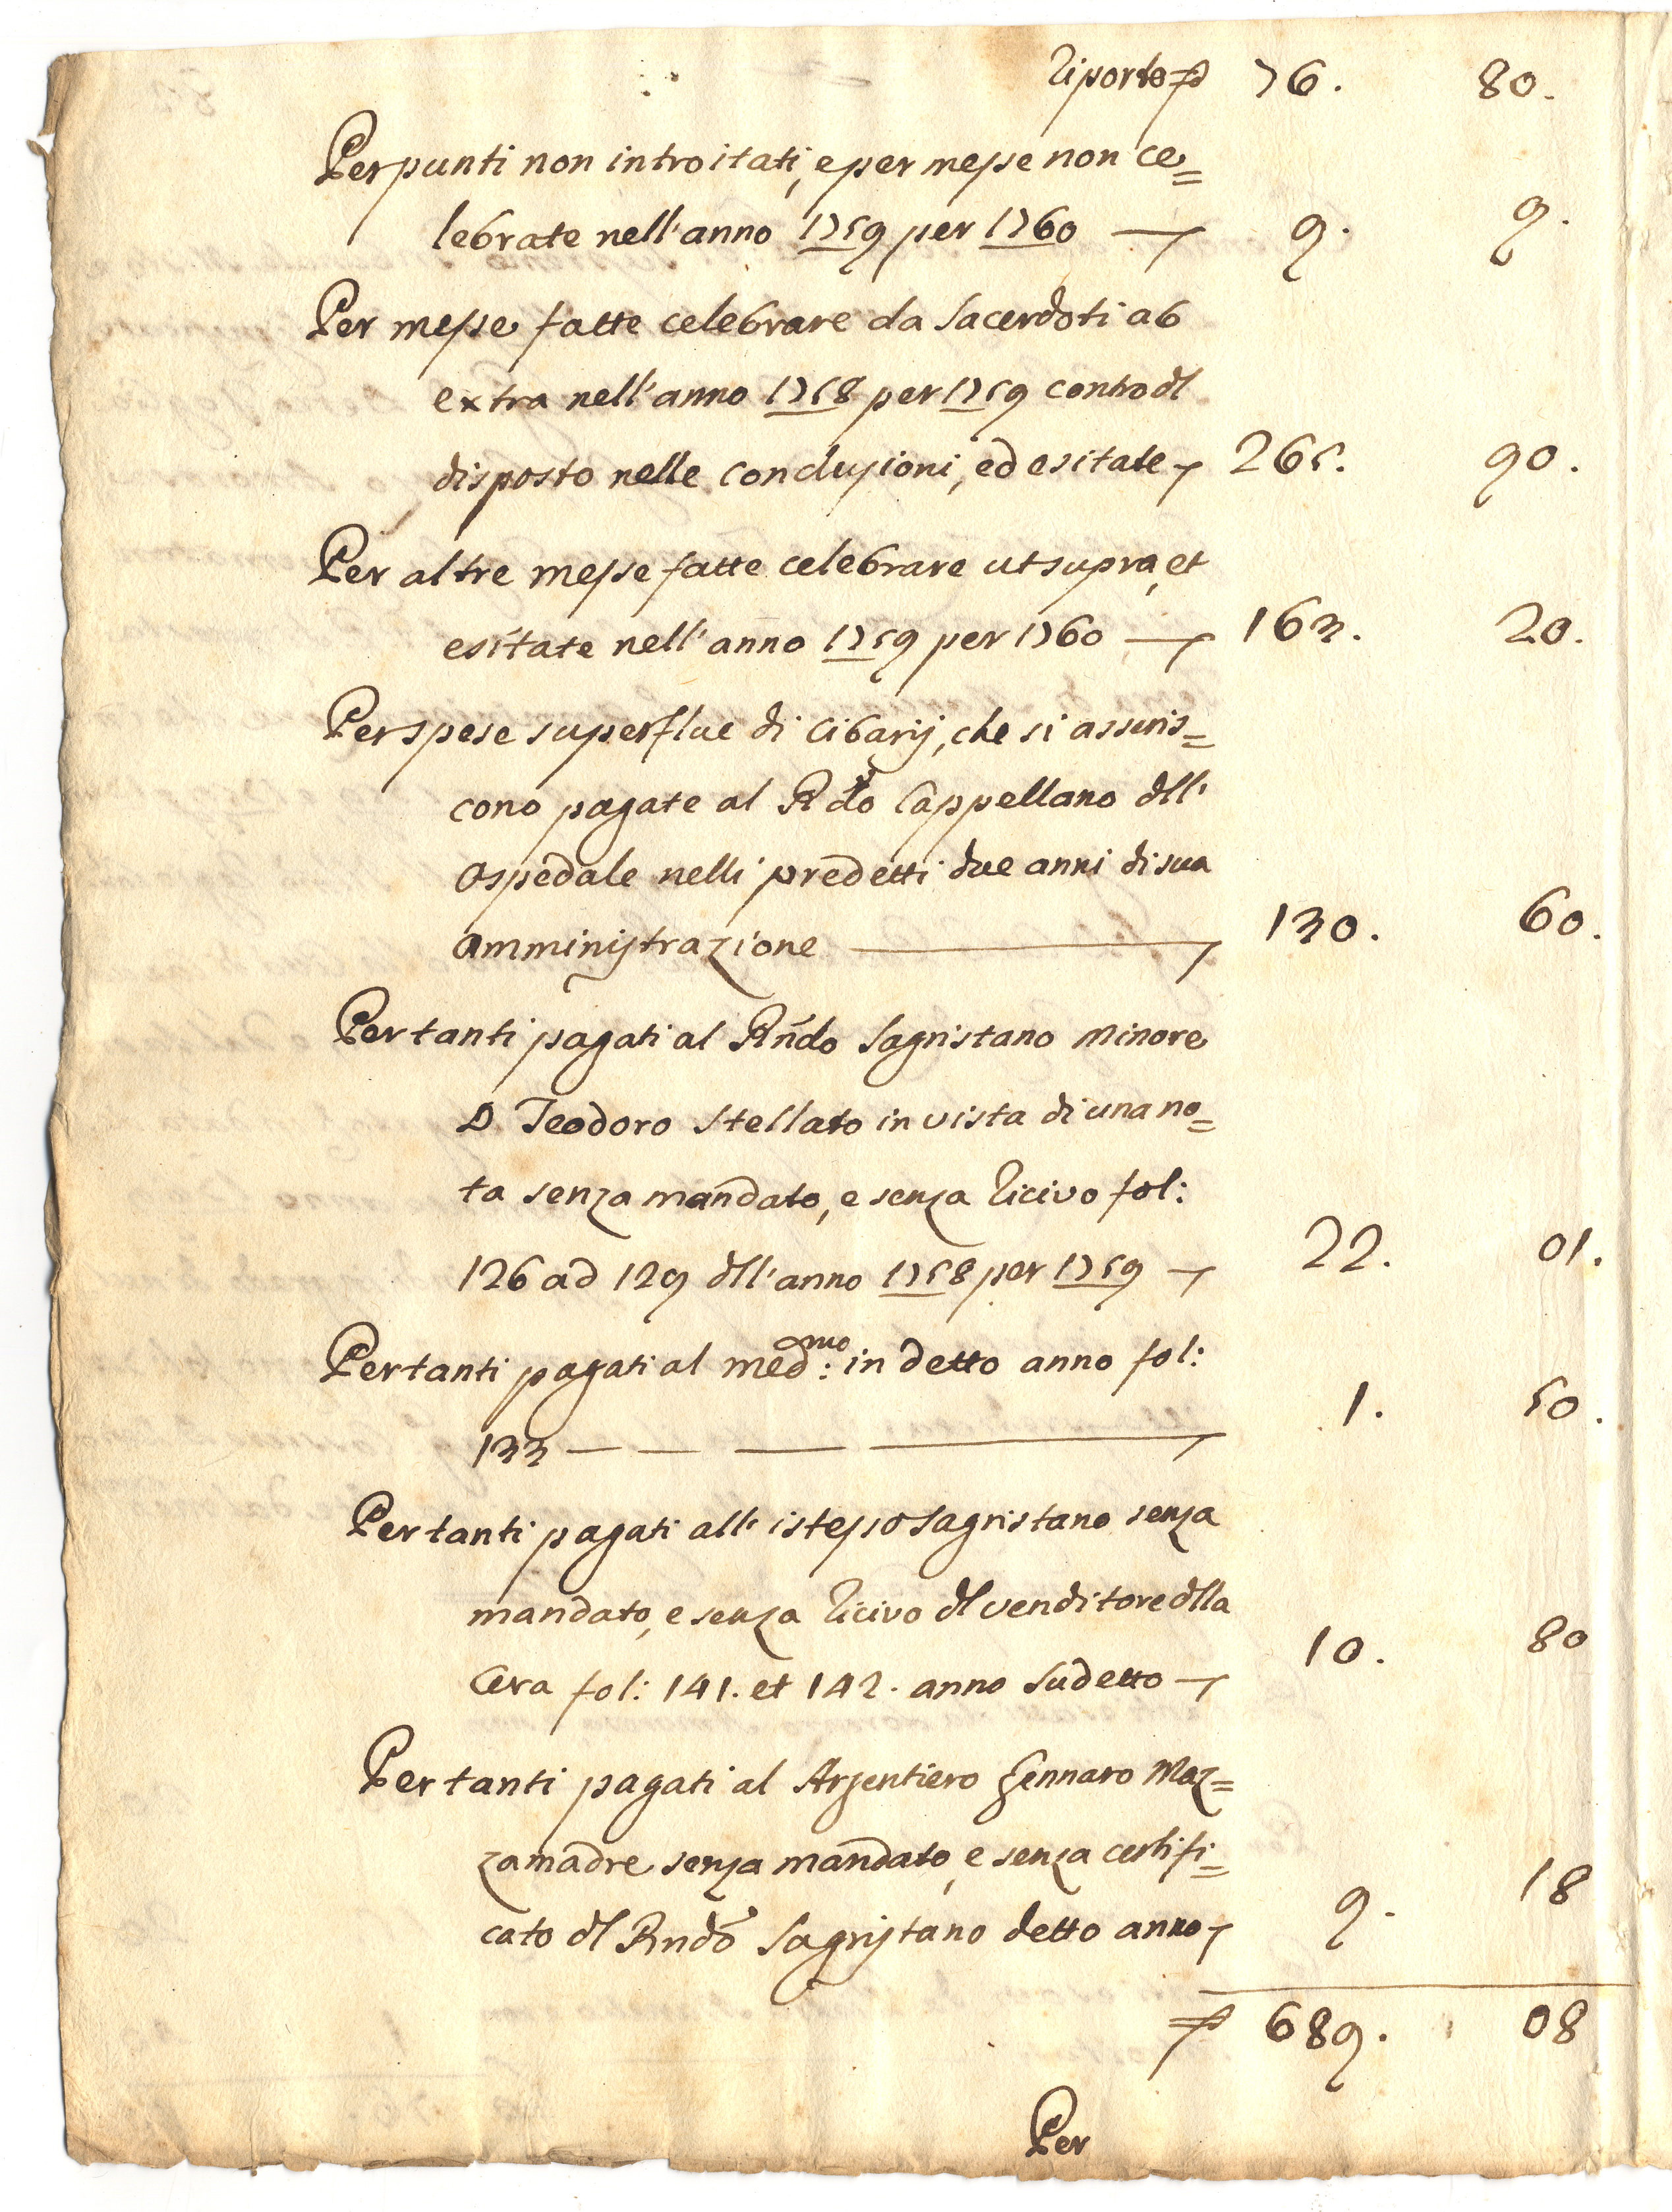 Riporto 76. 80.
Per punti non introitati, e per messe non ce=
lebrate nell'anno 1759 per 1760 — 9. 9.
Per messe fatte celebrare da Sacerdoti ab
extra nell'anno 1758 per 1759 contro dl
disposto nelle conclusioni, ed esitate 265. 90.
Per altre messe fatte celebrare ut supra, et
esitate nell'anno 1759 per 1760 — 163. 20.
Per spese superflue di cibarij, che si asseris=
cono pagate al Rdo Cappellano dll'
Ospedale nelli predetti due anni di sua
amministrazione — 130. 60.
Per tanti pagati al Rndo Sagristano minore
D Teodoro Stellato in vista di una no=
ta senza mandato, e senza ricivo fol:
126 ad 129 dll'anno 1758 per 1759 — 22. 01.
Per tanti pagati al med:mo in detto anno fol:
133 — — — — 1. 50.
Per tanti pagati all'istesso Sagristano senza
mandato, e senza ricivo dl venditore dlla
Cera fol: 141. et 142. anno Sudetto — 10. 80
Per tanti pagati al Argentiero Gennaro Maz=
zamadre senza mandato, e senza certifi=
cato dl Rndo Sagristano detto anno 9. 18
689. 08
Per